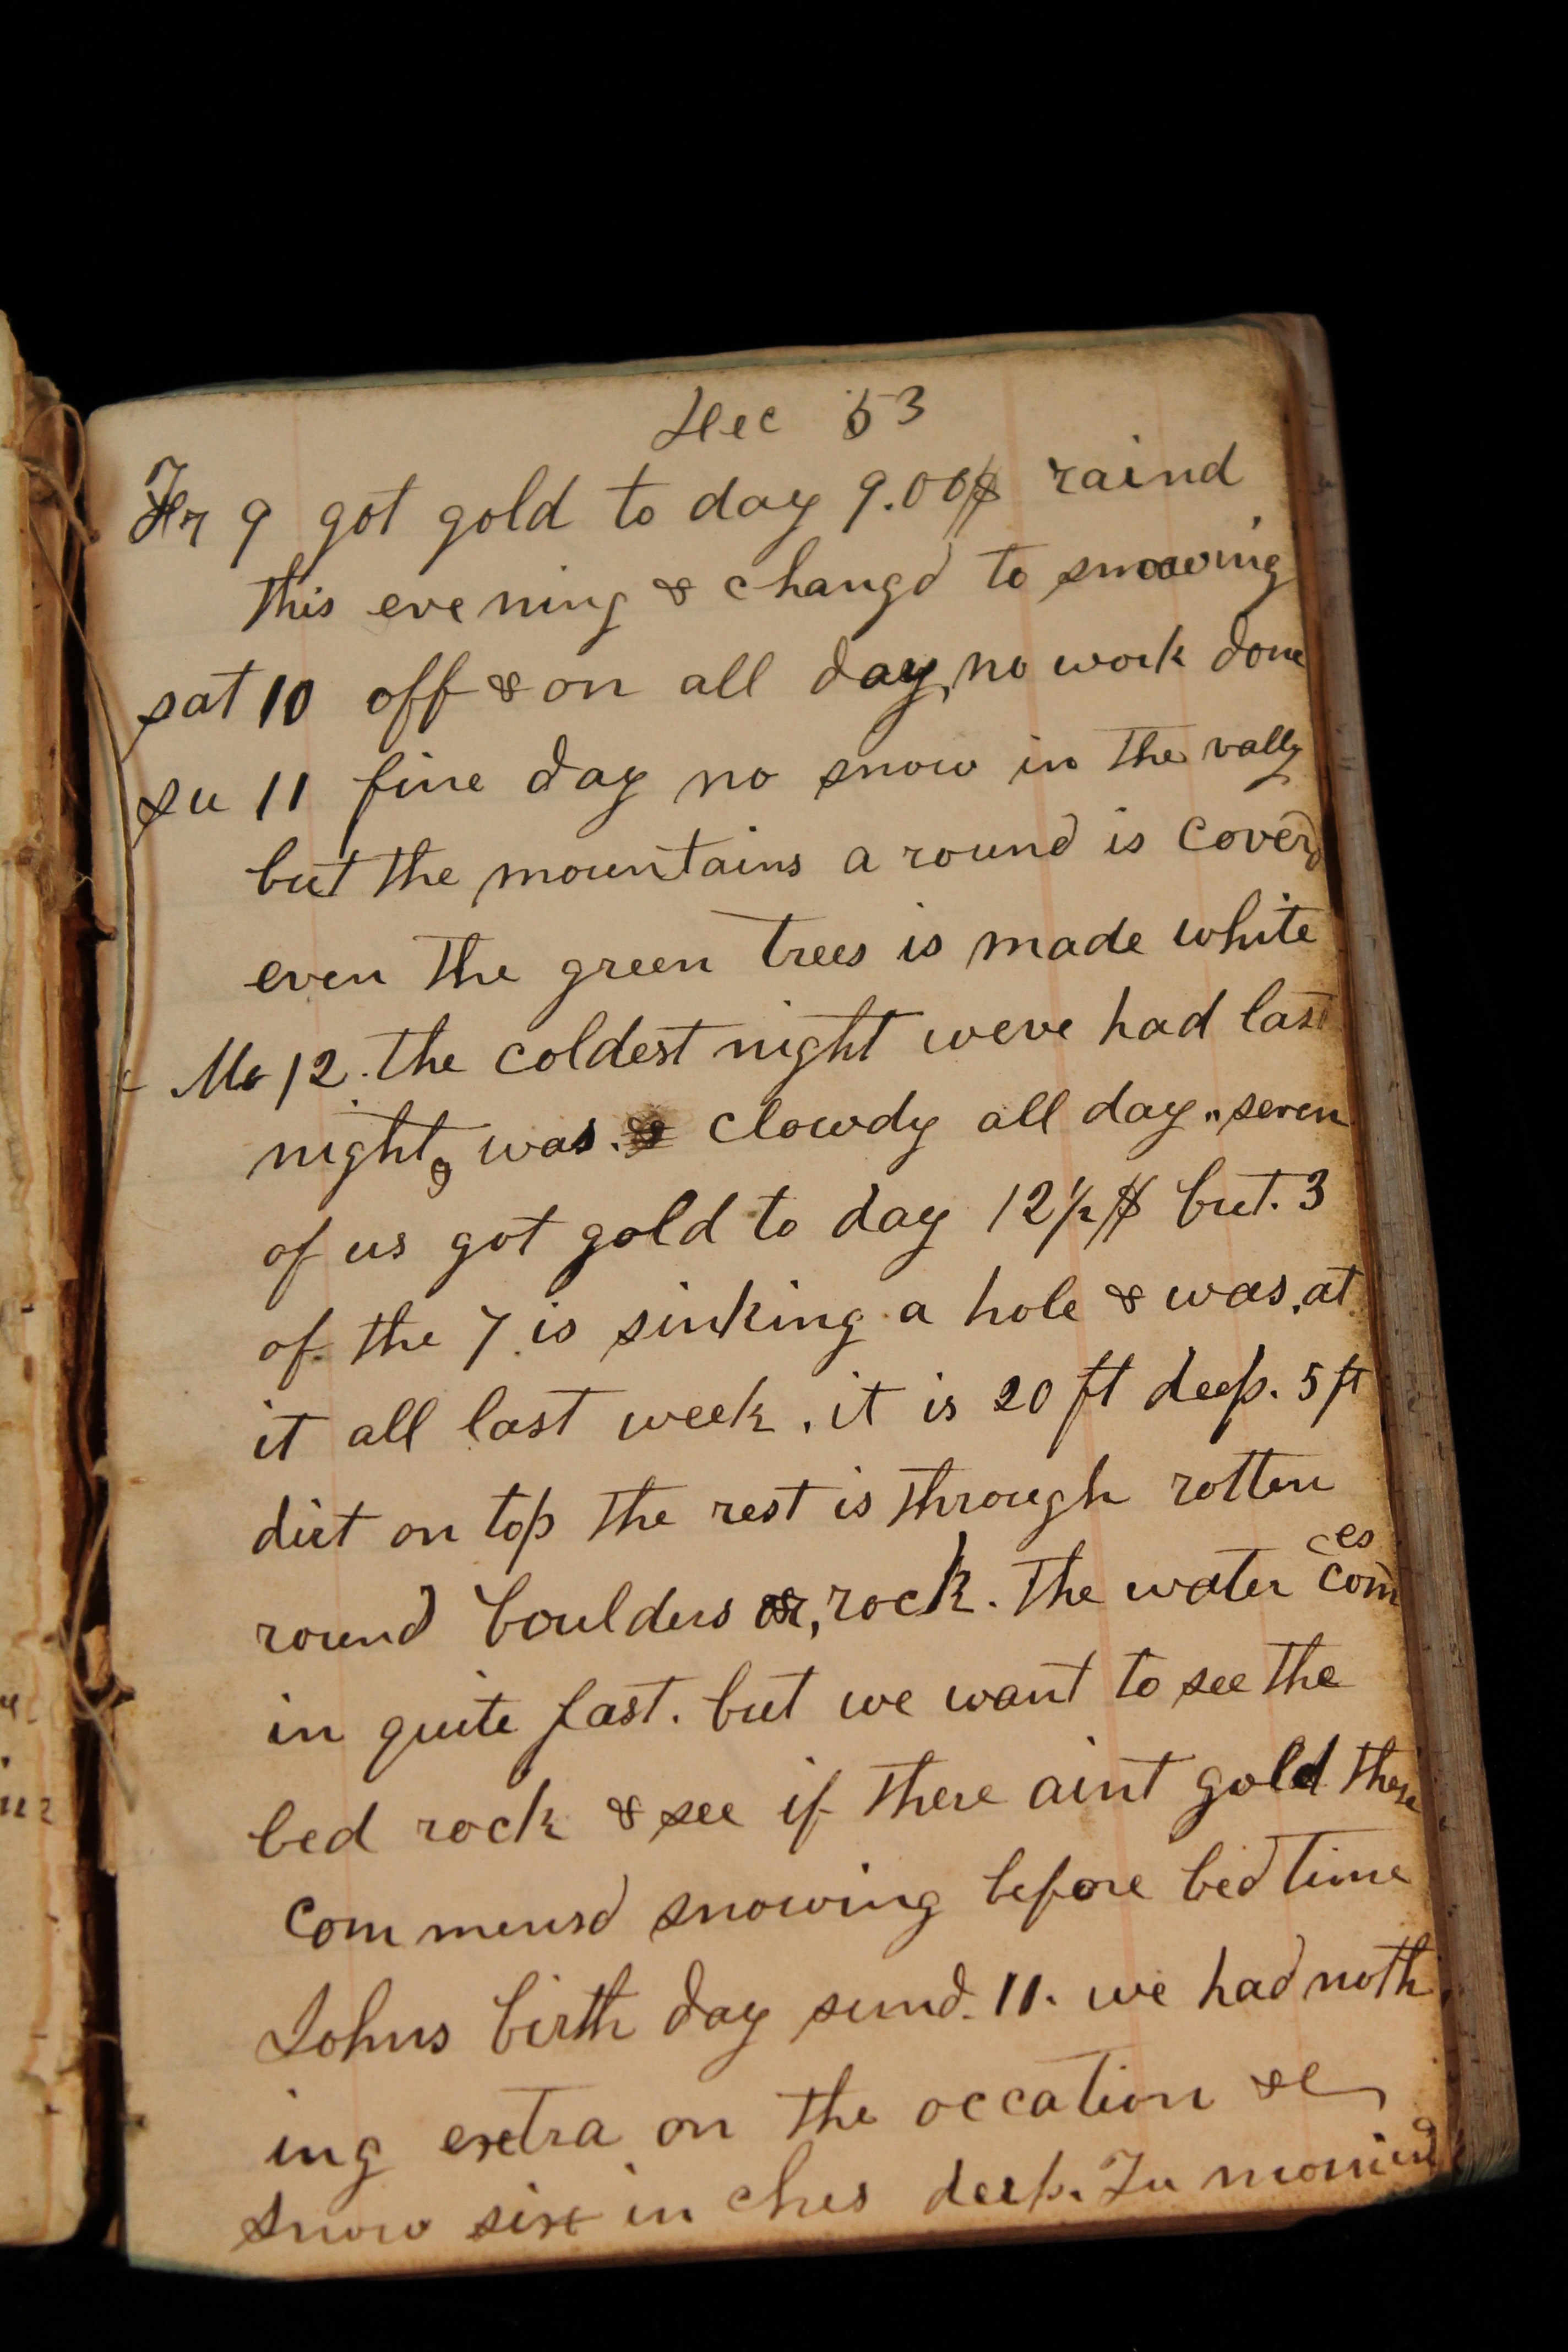 Dec 53
Fr 9 got gold to day 9.00$ raind
this evening & changd to snowing
sat 10 off & on all day, no work done
su 11 fine day no snow in the vally
but the mountains a round is coverd
even the green trees is made white
Mo 12. the coldest night weve had last
night, was. clowdy all day,, seven
of us got gold to day 12 1/2 $ but. 3
of the 7 is sinking a hole & was, at
it all last week. it is 20 ft deep. 5 ft
dirt on top the rest is through rotten
es
round boulders or, rock. the water com
in quite fast. but we want to see the
bed rock & see if there aint gold there
commensd snowing before bed time
Johns birth day sund. 11. we had noth
ing extra on the occation &c
snow six in ches deep. Tu